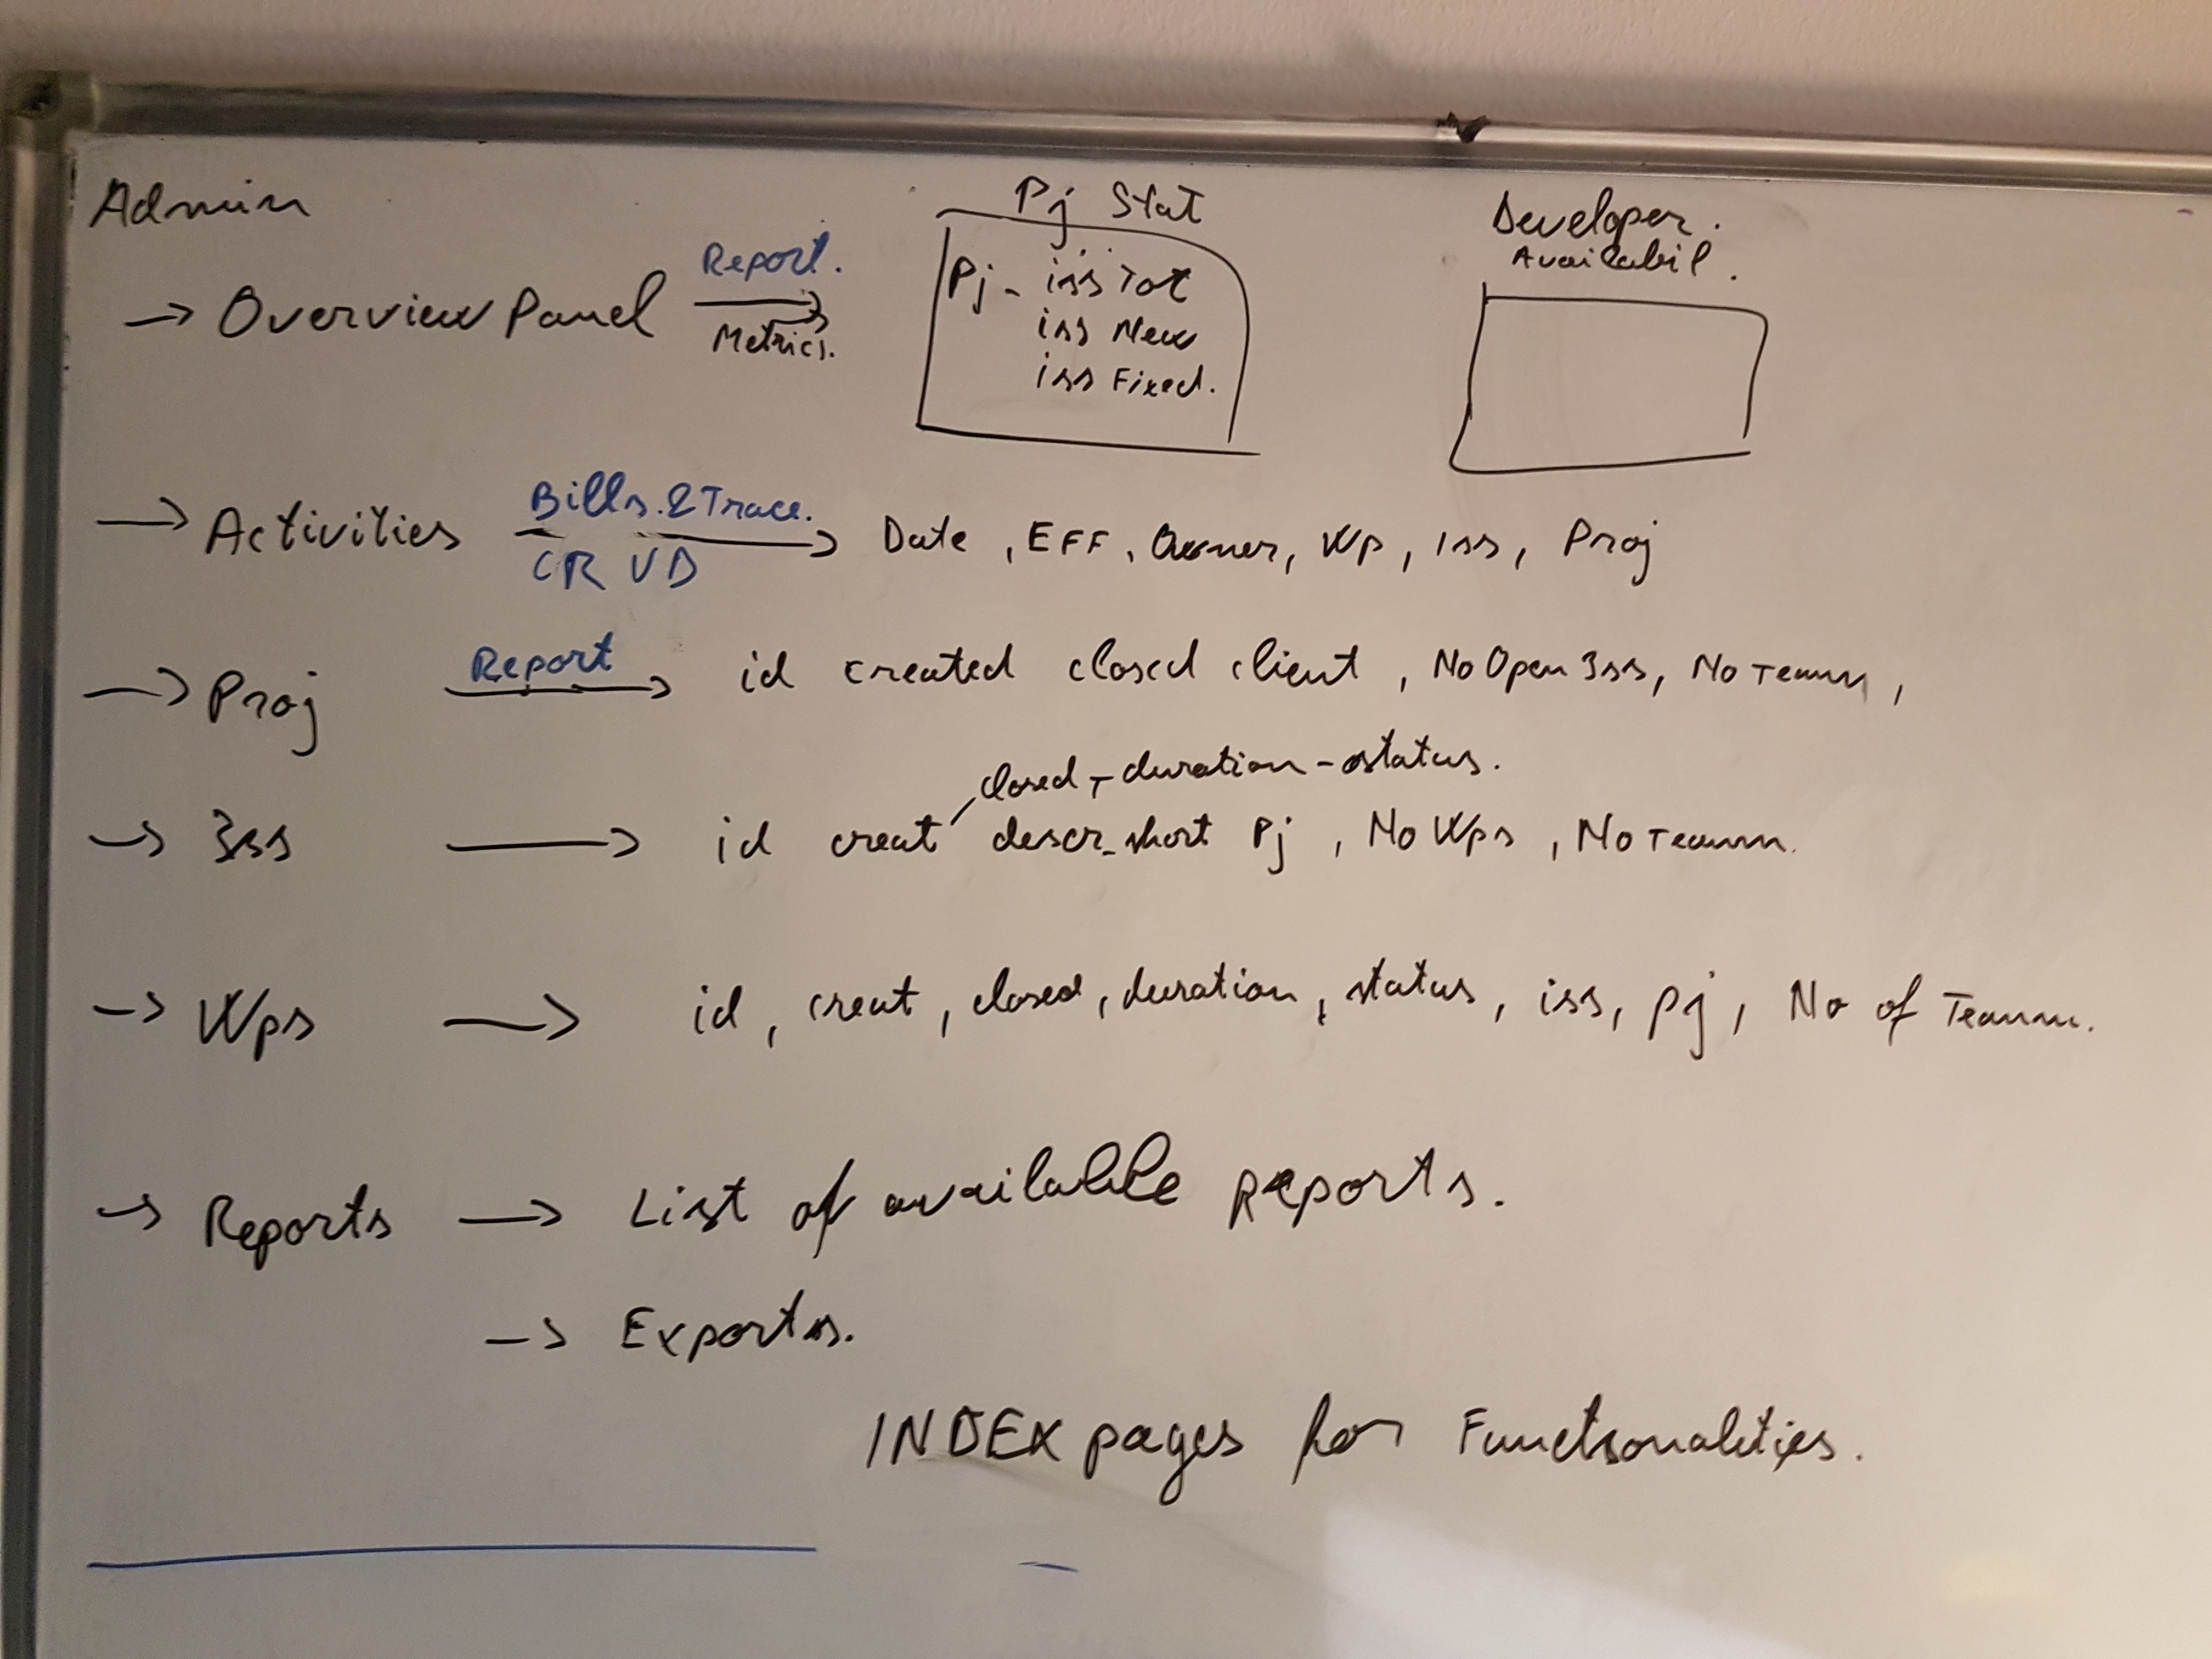 Admin
Pj Stat
Developer.
Availabil.
→ Overview Panel
Report.
Metrics.
Pj - iss Tot
iss New
iss Fixed.
→ Activities
Bills. & Trace.
CR UD
→ Date, EFF, Owner, Wp, Iss, Proj
→ Proj
Report
→ id created closed client, No Open Iss, No Teamm,
closed - duration - status.
→ Iss → id creat descr_short Pj, No Wps, No Teamm.
→ Wps → id, creat, closed, duration, status, iss, pj, No of Teamm.
→ Reports → List of available Reports.
→ Exports.
INDEX pages for Functionalities.